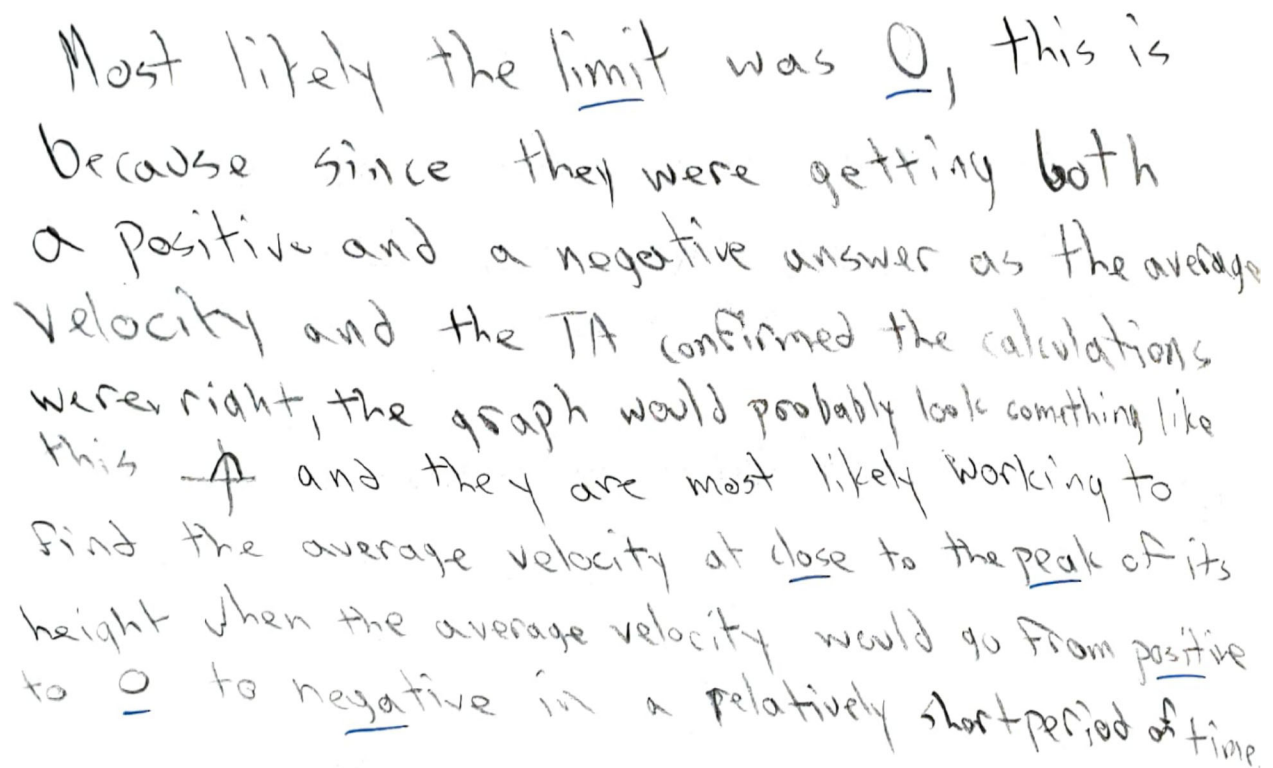 Most likely the limit was 0, this is
because since they were getting both
a positive and a negative answer as the average
velocity and the TA confirmed the calculations
were right, the graph would probably look something like
this and they are most likely working to
find the average velocity at close to the peak of its
height when the average velocity would go from positive
to 0 to negative in a relatively short period of time